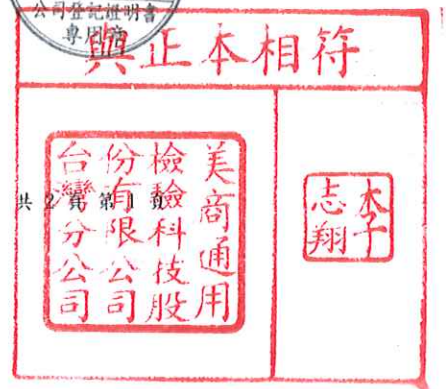 公司登記證明書
專用章
與正本相符
美商通用
檢驗科技股
份有限公司
台灣分公司
李志翔
共 2 頁 第 1 頁